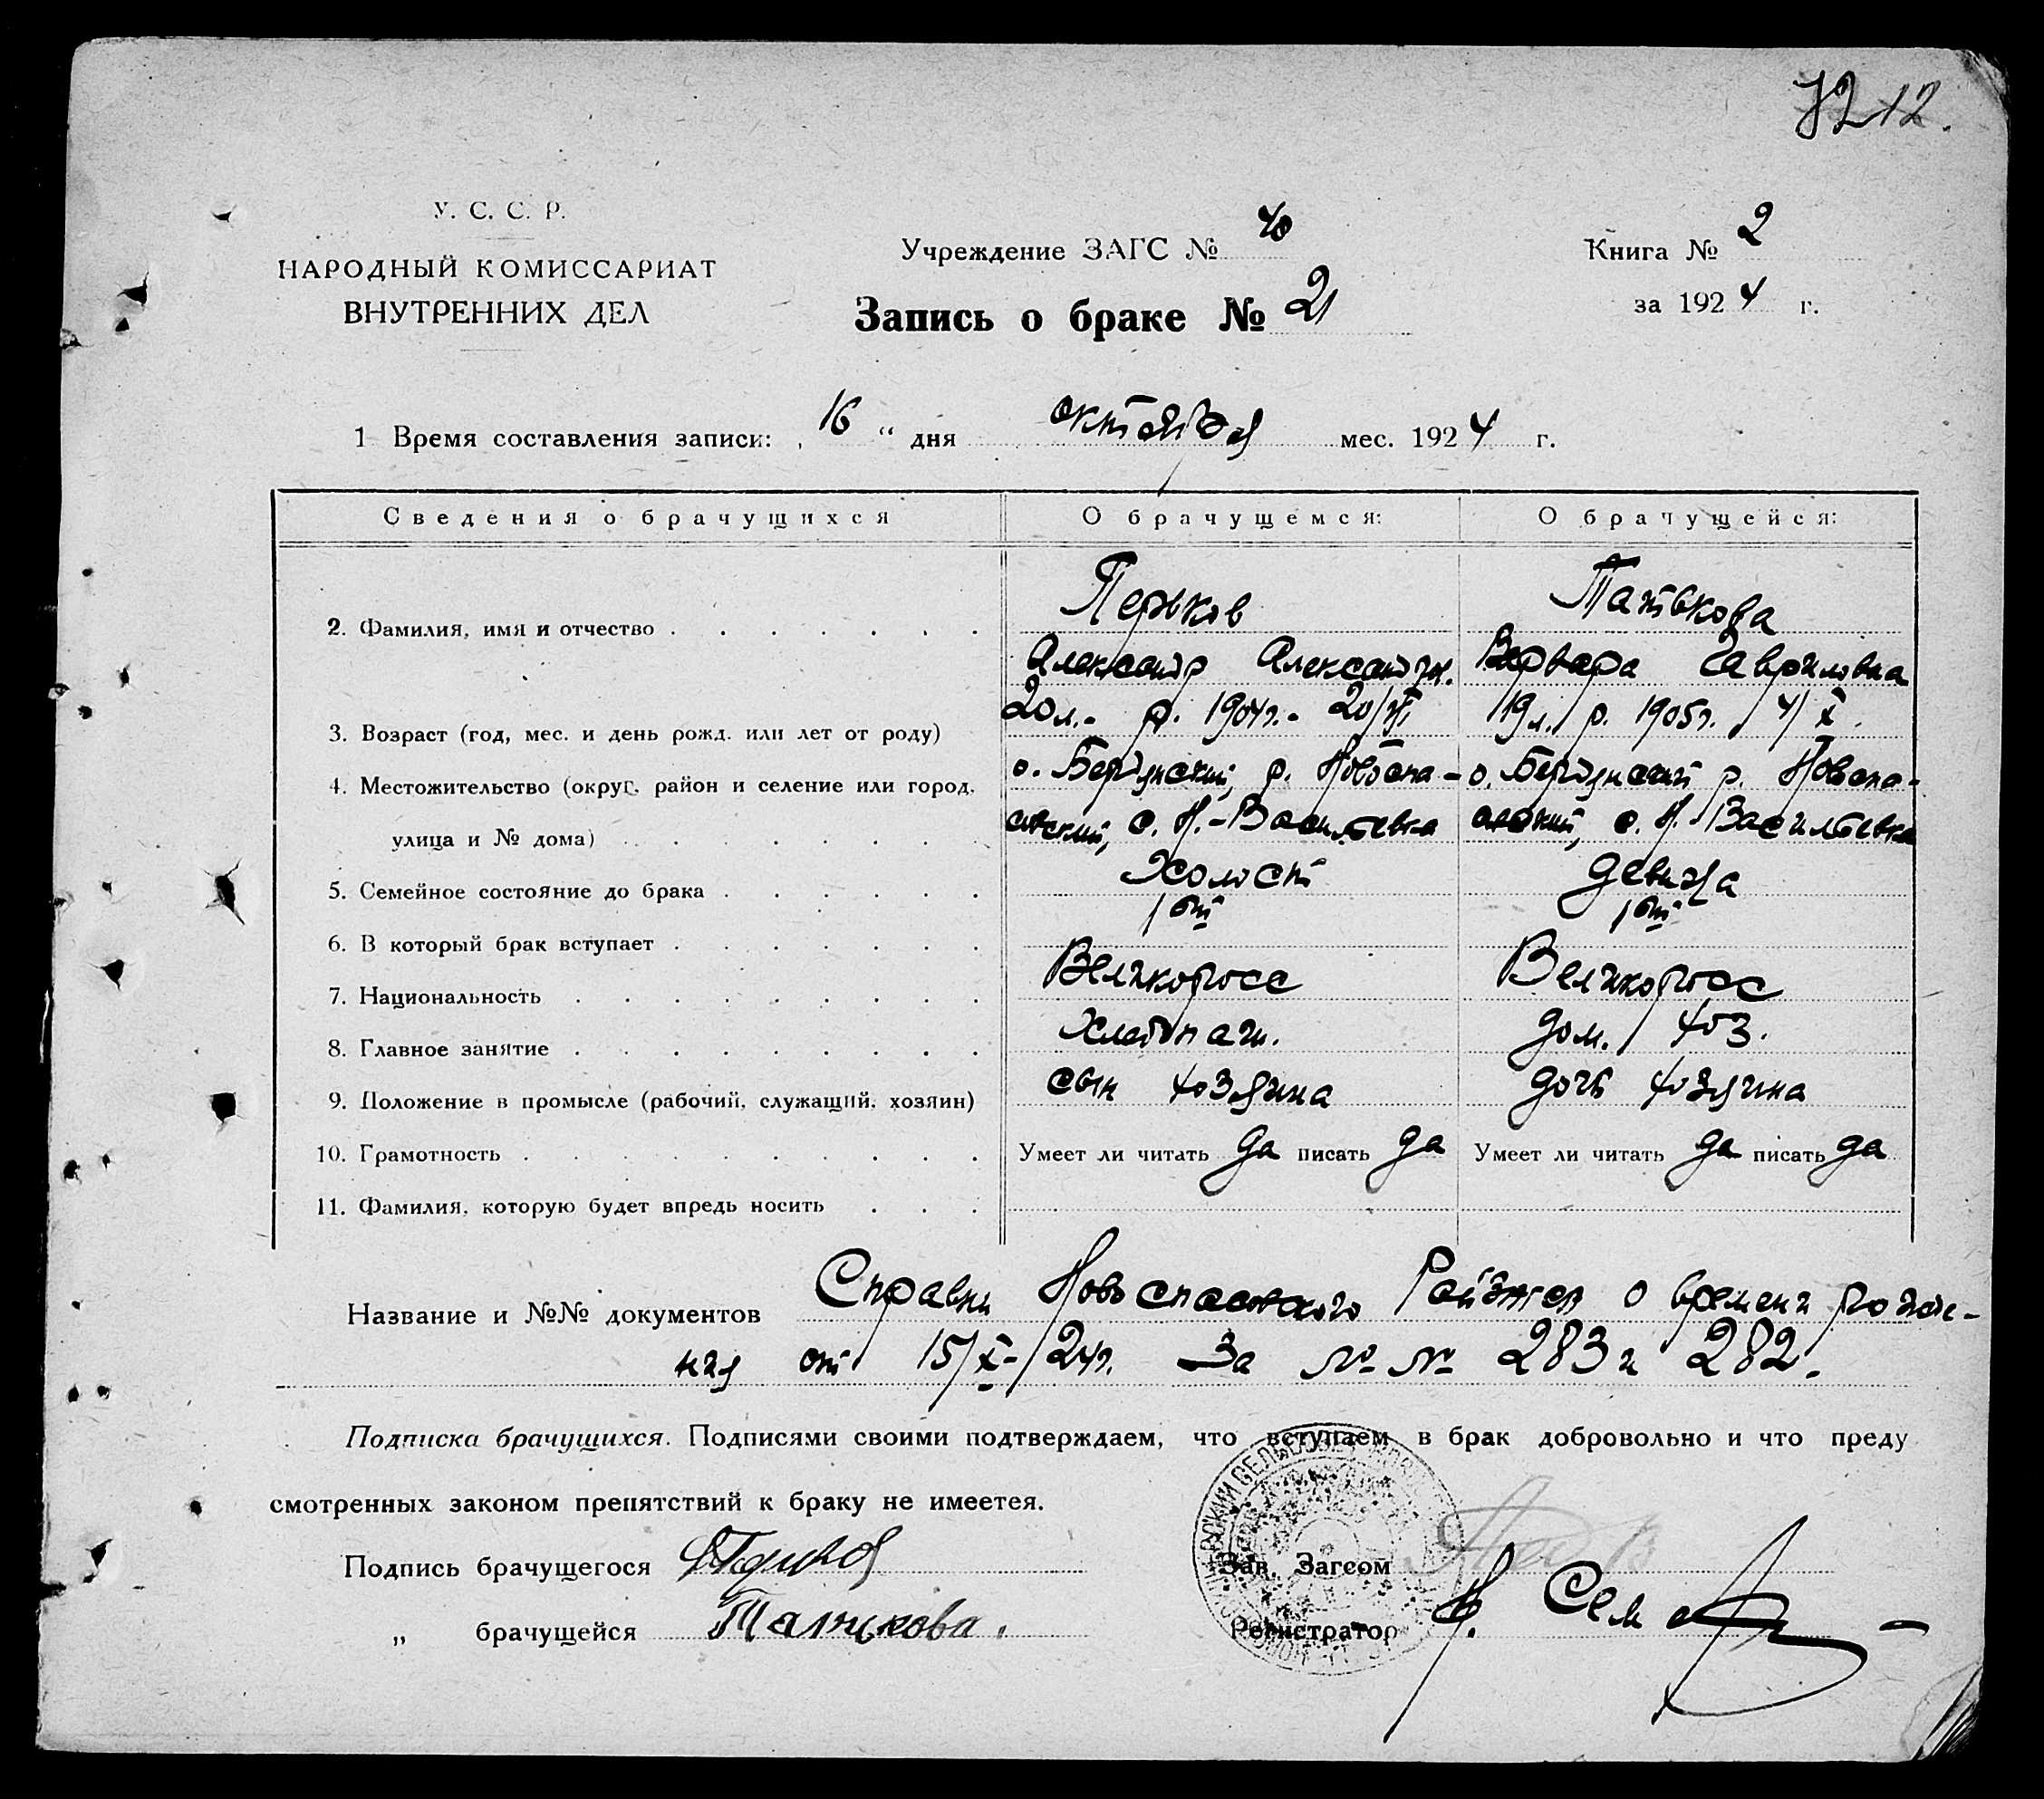 7212.
У. С. С. Р.
НАРОДНЫЙ КОМИССАРИАТ
ВНУТРЕННИХ ДЕЛ
Учреждение ЗАГС № 40
Запись о браке № 21
Книга № 2
за 1924 г.
1 Время составления записи: „16“ дня октября мес. 1924 г.
Сведения о брачущихся О брачущемся: О брачущейся:
2. Фамилия, имя и отчество Перьков Татькова
Александр Александр. Варвара Гавриловна
3. Возраст (год, мес. и день рожд. или лет от роду) 20 л. р. 1904 г. 19 л. р. 1905 г. 4/X.
4. Местожительство (округ, район и селение или город, о. Бердянский, р. Новоспа- о. Бердянский р. Новоспа-
улица и № дома) совский, с. Н.-Васильевка совский, с. Н. Васильевка
5. Семейное состояние до брака Холост девица
6. В который брак вступает 1ый 1ый
7. Национальность Великоросс Великоросс
8. Главное занятие Хлебопаш. дом. хоз.
9. Положение в промысле (рабочий, служащий, хозяин) сын хозяина дочь хозяина
10. Грамотность Умеет ли читать да писать да Умеет ли читать да писать да
11. Фамилия, которую будет впредь носить
Название и №№ документов Справки Новоспасовского о времени рожде-
ния от 15/X-24г. За №№ 283 и 282.
Подписка брачущихся. Подписями своими подтверждаем, что вступаем в брак добровольно и что преду
смотренных законом препятствий к браку не имеется.
Подпись брачущегося Зав. Загсом
„ брачущейся Татькова. Регистратор